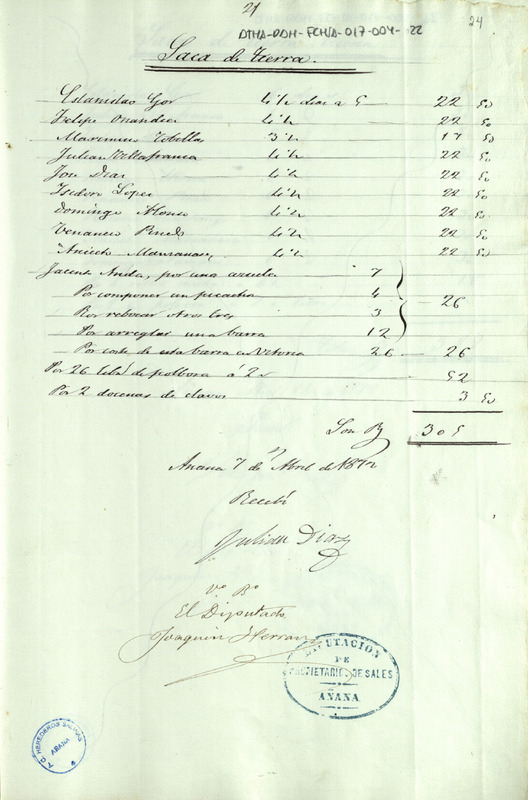 21
24
DTHA-DDH-FCH/A-017-004-22
Saca de tierra.
Estanislao Gor 4 ½ dias a 5 22 50
Felipe Onandia 4 ½ 22 50
Maximino Tobella 3 ½ 17 50
Julian Villafranca 4 ½ 22 50
Jose Diaz 4 ½ 22 50
Isidoro Lopez 4 ½ 22 50
Domingo Alonso 4 ½ 22 50
Venancio Pinedo 4 ½ 22 50
Aniceto Manzanos, 4 ½ 22 50
Jacinto Anda, por una azuela 7
Por componer un picacho 4
26
Por rebocar otros tres 3
Por arreglar una barra 12
Por coste de esta barra en Vitoria 26 26
Por 26 lib.s de polbora á 2 52
Por 2 docenas de clavos 3 50
Son R.s 305
Anana 7 de Abril de 1872
Recibí
Julian Diaz
V.o B.o
El Diputado
Joaquin Herran
DIPUTACION
DE
PROPIETARIOS DE SALES
AÑANA
HEREDEROS SALINAS
AÑANA